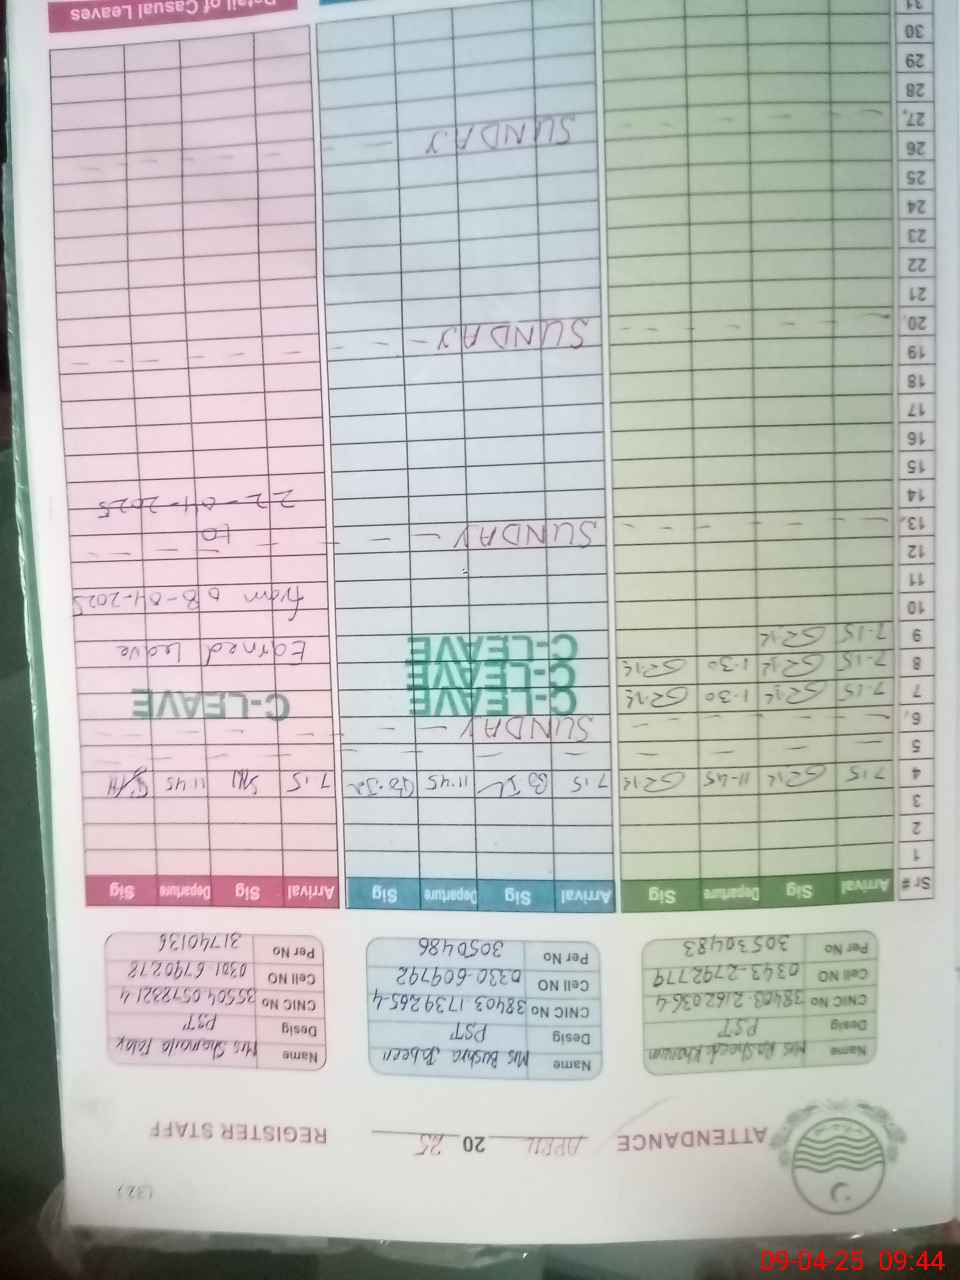 (32)
ATTENDANCE APRIL 20 25 REGISTER STAFF
Name Mrs Rasheeda Khanum
Desig PST
CNIC No 38403-2162036-4
Cell NO 0343-2792779
Per No 30530483
Name Mrs Bushra Jabeen
Desig PST
CNIC No 38403-1739265-4
Cell NO 0330-609792
Per No 3050486
Name Mrs Shamaila Falak
Desig PST
CNIC No 35504-0578321-4
Cell NO 0301-6790278
Per No 31740136
Sr # Arrival Sig Departure Sig Arrival Sig Departure Sig Arrival Sig Departure Sig
1
2
3
4 7.15 11-45 7.15 11.45 7.15 11.45
5
6. SUNDAY
7 7-15 1-30 C-LEAVE C-LEAVE
8 7-15 1-30 C-LEAVE Earned Leave
9 7-15 C-LEAVE
10 from 08-04-2025
11
12 to
13. SUNDAY 22-04-2025
14
15
16
17
18
19
20. SUNDAY
21
22
23
24
25
26
27. SUNDAY
28
29
30
31
Detail of Casual Leaves
09-04-25 09:44